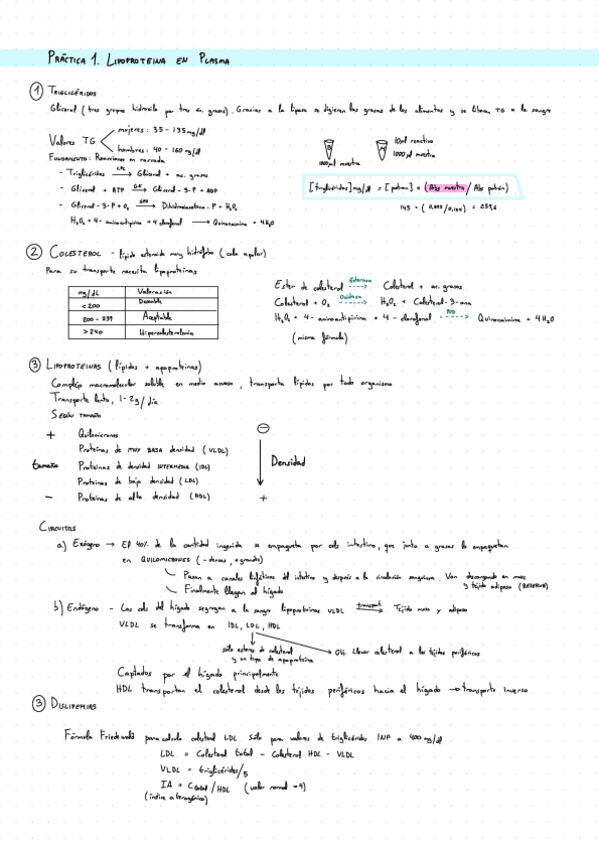 PRÁCTICA 1. LIPOPROTEINA EN PLASMA
① TRIGLICÉRIDOS
Glicerol (tres grupos hidroxilo por tres ác. grasos). Gracias a la lipasa se digieren las grasas de los alimentos y se liberan TG a la sangre
Valores TG
mujeres: 35 - 135 mg/dl
hombres: 40 - 160 mg/dl
FUNDAMENTO: Reacciones en cascada
- Triglicéridos → Glicerol + ac. grasos
- Glicerol + ATP GK→ Glicerol-3-P + ADP
- Glicerol-3-P + O₂ GPO→ Dihidroxiacetona-P + H₂O₂
H₂O₂ + 4-aminoantipirina + 4-clorofenol → Quinonaimina + 4H₂O
1000 µl muestra
10 µl reactivo
1000 µl muestra
[triglicéridos] mg/dl = [patron] * (Abs muestra / Abs patrón)
② COLESTEROL - lípido esteroide muy hidrófobo (cola apolar)
Para su transporte necesita lipoproteínas
mg/dL Valoración
<200 Deseable
200 - 239 Aceptable
>240 Hipercolesterolemia
Ester de colesterol Esterasa→ Colesterol + ac. grasos
Colesterol + O₂ Oxidasa→ H₂O₂ + Colesterol-3-ona
H₂O₂ + 4-aminoantipirina + 4-clorofenol POD→ Quinonaimina + 4H₂O
(misma fórmula)
③ LIPOPROTEINAS (lípidos + apoproteínas)
Complejo macromolecular soluble en medio acuoso, transporta lípidos por todo organismo
Transporte lento, 1-2g/día
SEGÚN TAMAÑO
+ Quilomicrones
Proteínas de MUY BAJA densidad (VLDL)
tamaño Proteínas de densidad INTERMEDIA (IDL)
Proteínas de baja densidad (LDL)
- Proteínas de alta densidad (HDL)
⊖
Densidad
+
CIRCUITOS
a) Exógeno → El 40% de la cantidad ingerida se empaqueta por cels intestino, que junto a grasas lo empaquetan
en QUILOMICRONES (- densos, + grandes)
Pasan a canales linfáticos del intestino y después a la circulación sanguínea. Van descargando en musc
y tejido adiposo (RESERVA)
Finalmente llegan al hígado
b) Endógeno - Las cels del hígado segregan a la sangre lipoproteínas VLDL transport→ Tejido musc y adiposo
VLDL se transforma en IDL, LDL, HDL
sólo esteres de colesterol
y un tipo de apoproteína
Llevar colesterol a los tejidos periféricos
Captados por el hígado principalmente
HDL transportan el colesterol desde los tejidos periféricos hacia el hígado → transporte inverso
③ DISLIPEMIAS
Fórmula Friedewald para calcula colesterol LDL Sólo para valores de triglicéridos INF a 400 mg/dl
LDL = Colesterol total - Colesterol HDL - VLDL
VLDL = triglicéridos/5
IA = Ctotal / HDL (valor normal = 4)
(índice aterogénico)